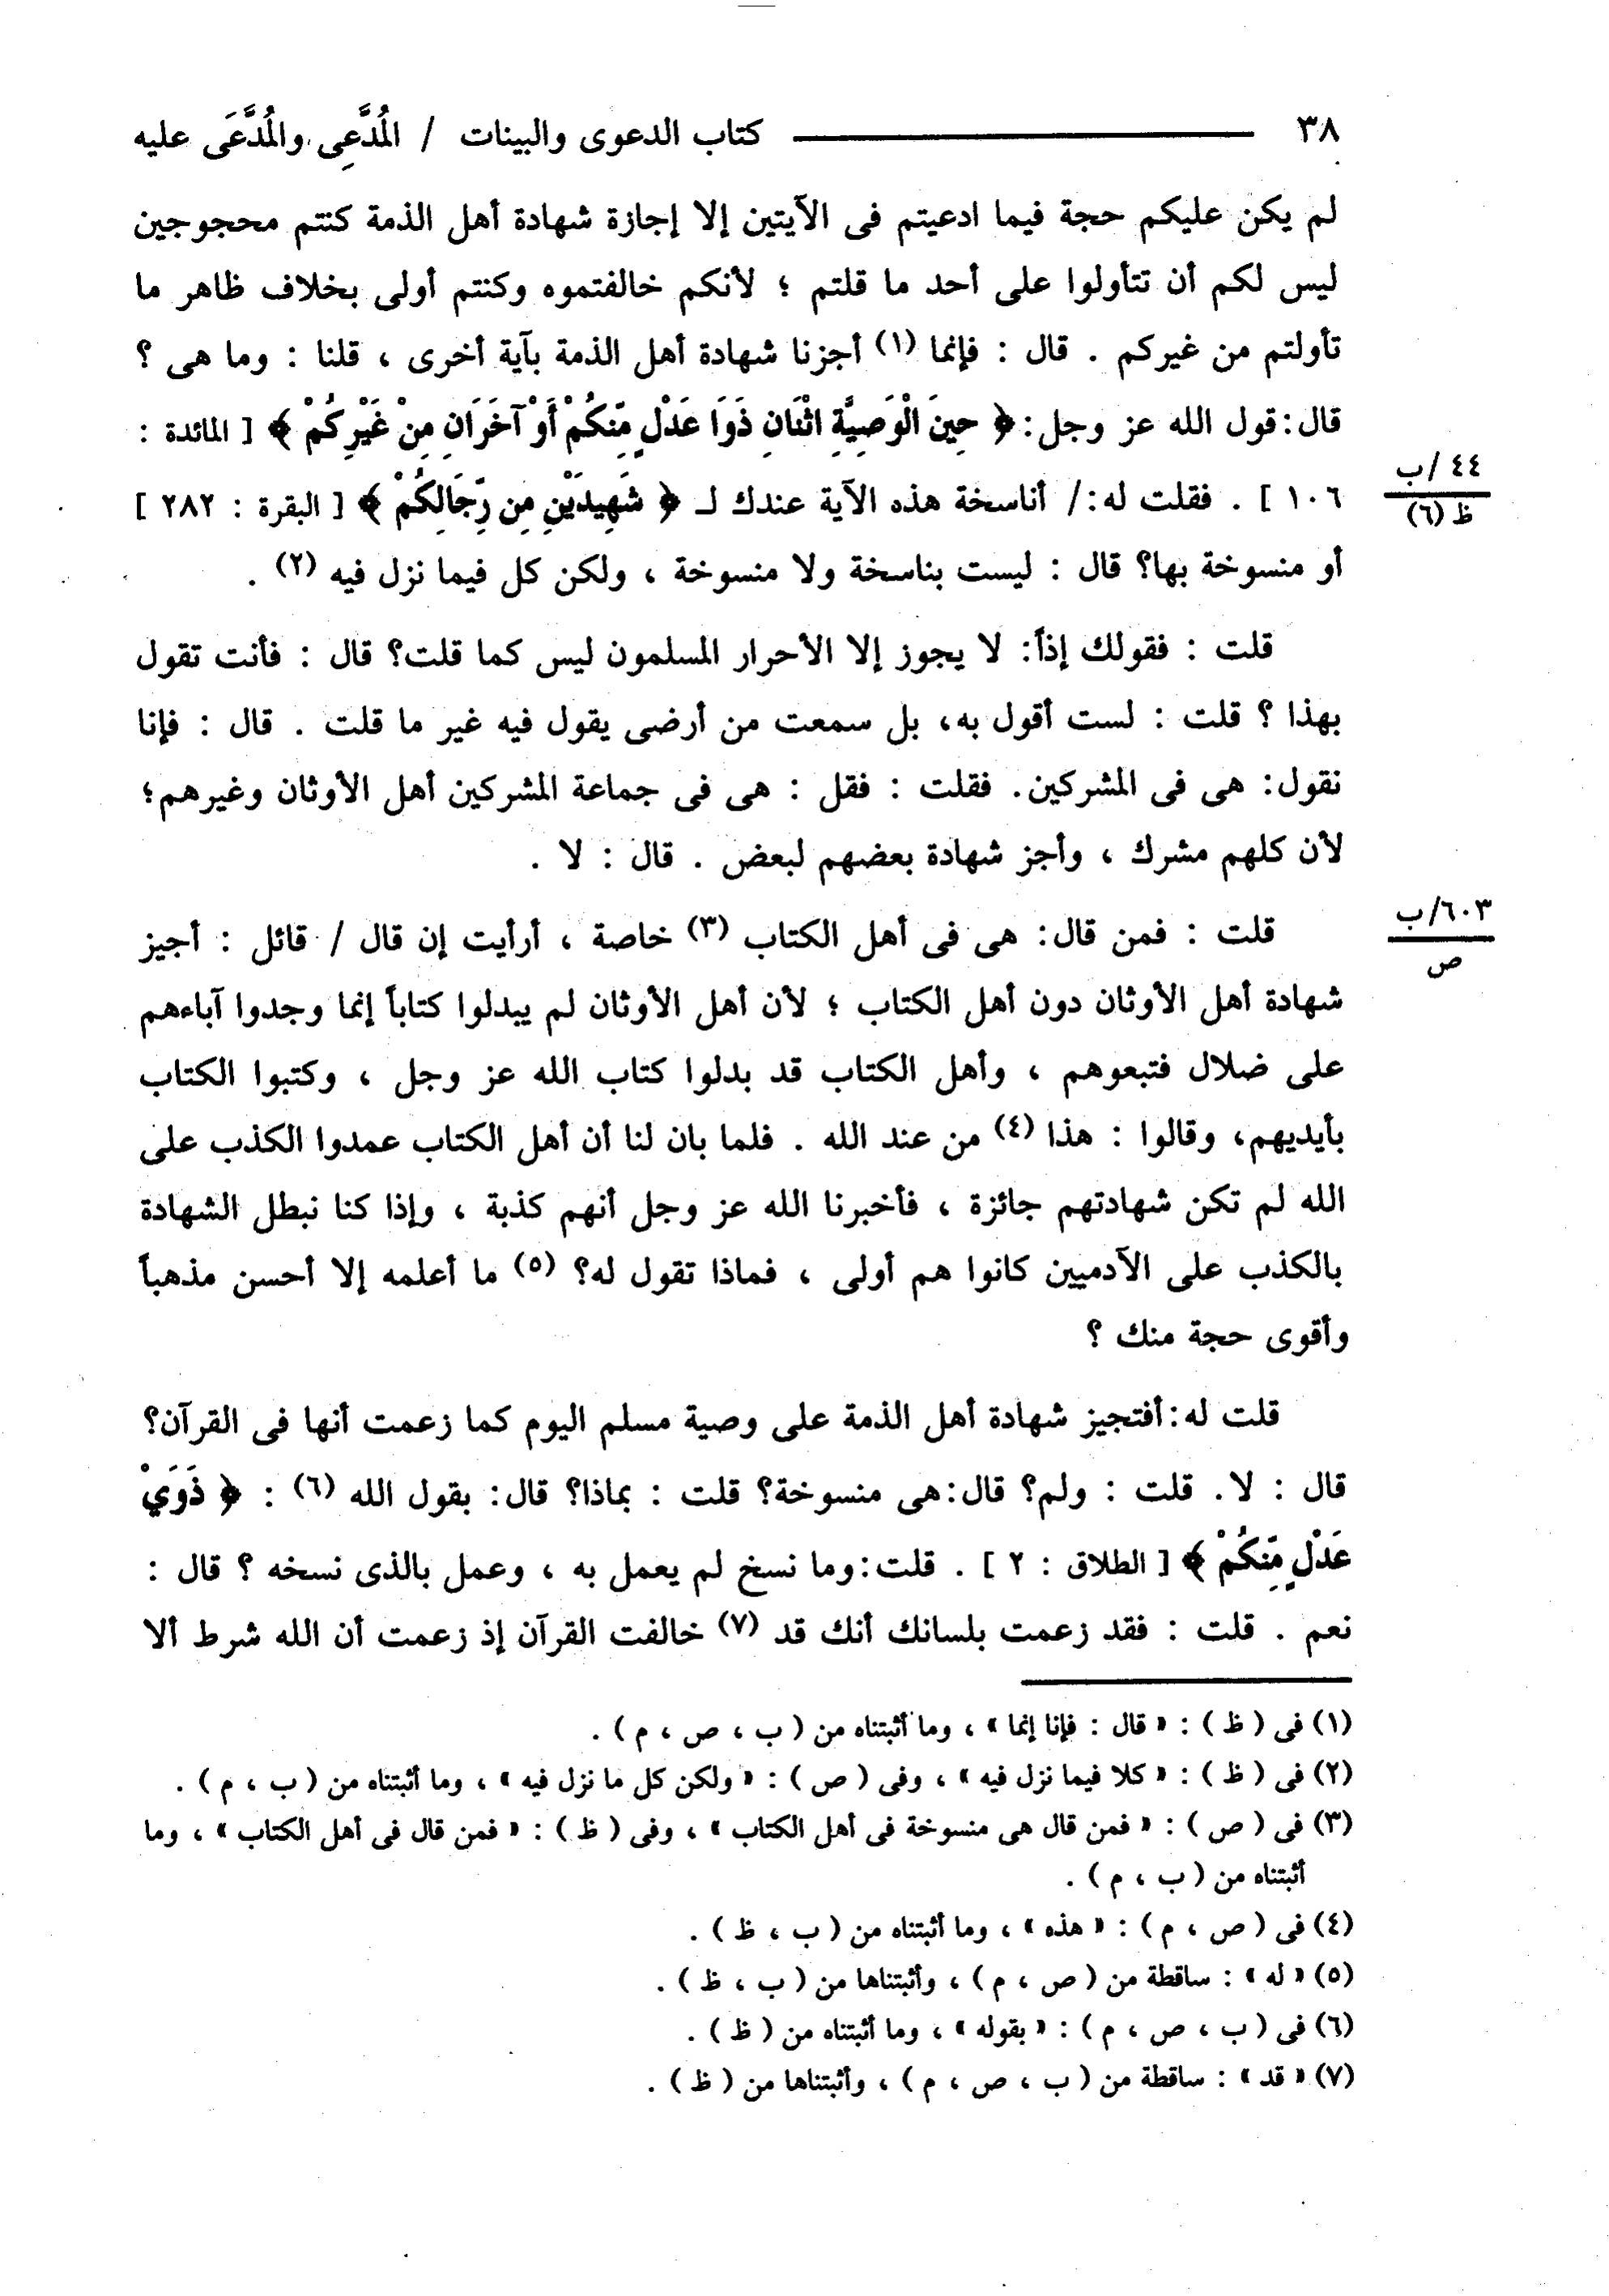 ٣٨ كتاب الدعوى والبينات / المُدَّعِى والمُدَّعَى عليه
لم يكن عليكم حجة فيما ادعيتم فى الآيتين إلا إجازة شهادة أهل الذمة كنتم محجوجين
ليس لكم أن تتأولوا على أحد ما قلتم ؛ لأنكم خالفتموه وكنتم أولى بخلاف ظاهر ما
تأولتم من غيركم . قال : فإنما (١) أجزنا شهادة أهل الذمة بآية أخرى ، قلنا : وما هى ؟
قال: قول الله عز وجل: ﴿ حِينَ الْوَصِيَّةِ اثْنَانِ ذَوَا عَدْلٍ مِّنكُمْ أَوْ آخَرَانِ مِنْ غَيْرِكُمْ ﴾ [ المائدة :
٤٤ /ب
١٠٦ ] . فقلت له: / أناسخة هذه الآية عندك لـ ﴿ شَهِيدَيْنِ مِن رِّجَالِكُمْ ﴾ [ البقرة : ٢٨٢ ]
ظ (٦)
أو منسوخة بها؟ قال : ليست بناسخة ولا منسوخة ، ولكن كل فيما نزل فيه (٢) .
قلت : فقولك إذاً: لا يجوز إلا الأحرار المسلمون ليس كما قلت؟ قال : فأنت تقول
بهذا ؟ قلت : لست أقول به، بل سمعت من أرضى يقول فيه غير ما قلت . قال : فإنا
نقول: هى فى المشركين. فقلت : فقل : هى فى جماعة المشركين أهل الأوثان وغيرهم؛
لأن كلهم مشرك ، وأجز شهادة بعضهم لبعض . قال : لا .
٦٠٣/ب
قلت : فمن قال: هى فى أهل الكتاب (٣) خاصة ، أرأيت إن قال / قائل : أجيز
ص
شهادة أهل الأوثان دون أهل الكتاب ؛ لأن أهل الأوثان لم يبدلوا كتاباً إنما وجدوا آباءهم
على ضلال فتبعوهم ، وأهل الكتاب قد بدلوا كتاب الله عز وجل ، وكتبوا الكتاب
بأيديهم، وقالوا : هذا (٤) من عند الله . فلما بان لنا أن أهل الكتاب عمدوا الكذب على
الله لم تكن شهادتهم جائزة ، فأخبرنا الله عز وجل أنهم كذبة ، وإذا كنا نبطل الشهادة
بالكذب على الآدميين كانوا هم أولى ، فماذا تقول له؟ (٥) ما أعلمه إلا أحسن مذهباً
وأقوى حجة منك ؟
قلت له: أفتجيز شهادة أهل الذمة على وصية مسلم اليوم كما زعمت أنها فى القرآن؟
قال : لا. قلت : ولم؟ قال: هى منسوخة؟ قلت : بماذا؟ قال: بقول الله (٦) : ﴿ ذَوَيْ
عَدْلٍ مِّنكُمْ ﴾ [ الطلاق : ٢ ] . قلت: وما نسخ لم يعمل به ، وعمل بالذى نسخه ؟ قال :
نعم . قلت : فقد زعمت بلسانك أنك قد (٧) خالفت القرآن إذ زعمت أن الله شرط ألا
(١) فى ( ظ ) : « قال : فإنا إنما » ، وما أثبتناه من ( ب ، ص ، م ) .
(٢) فى ( ظ ) : « كلا فيما نزل فيه » ، وفى ( ص ) : « ولكن كل ما نزل فيه » ، وما أثبتناه من ( ب ، م ) .
(٣) فى ( ص ) : « فمن قال هى منسوخة فى أهل الكتاب » ، وفى ( ظ ) : « فمن قال فى أهل الكتاب » ، وما
أثبتناه من ( ب ، م ) .
(٤) فى ( ص ، م ) : « هذه » ، وما أثبتناه من ( ب ، ظ ) .
(٥) « له » : ساقطة من ( ص ، م ) ، وأثبتناها من ( ب ، ظ ) .
(٦) فى ( ب ، ص ، م ) : « بقوله » ، وما أثبتناه من ( ظ ) .
(٧) « قد » : ساقطة من ( ب ، ص ، م ) ، وأثبتناها من ( ظ ) .